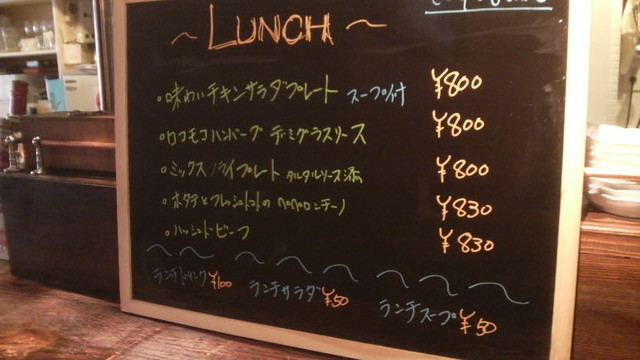 ~ LUNCH ~
・味わいチキンサラダプレート スープ付 ¥800
・ロコモコハンバーグ デミグラスソース ¥800
・ミックスフライプレート タルタルソース添 ¥800
・ホタテとフレッシュトマトの ペペロンチーノ ¥830
・ハッシュドビーフ ¥830
ランチドリンク ¥100 ランチサラダ ¥50 ランチスープ ¥50